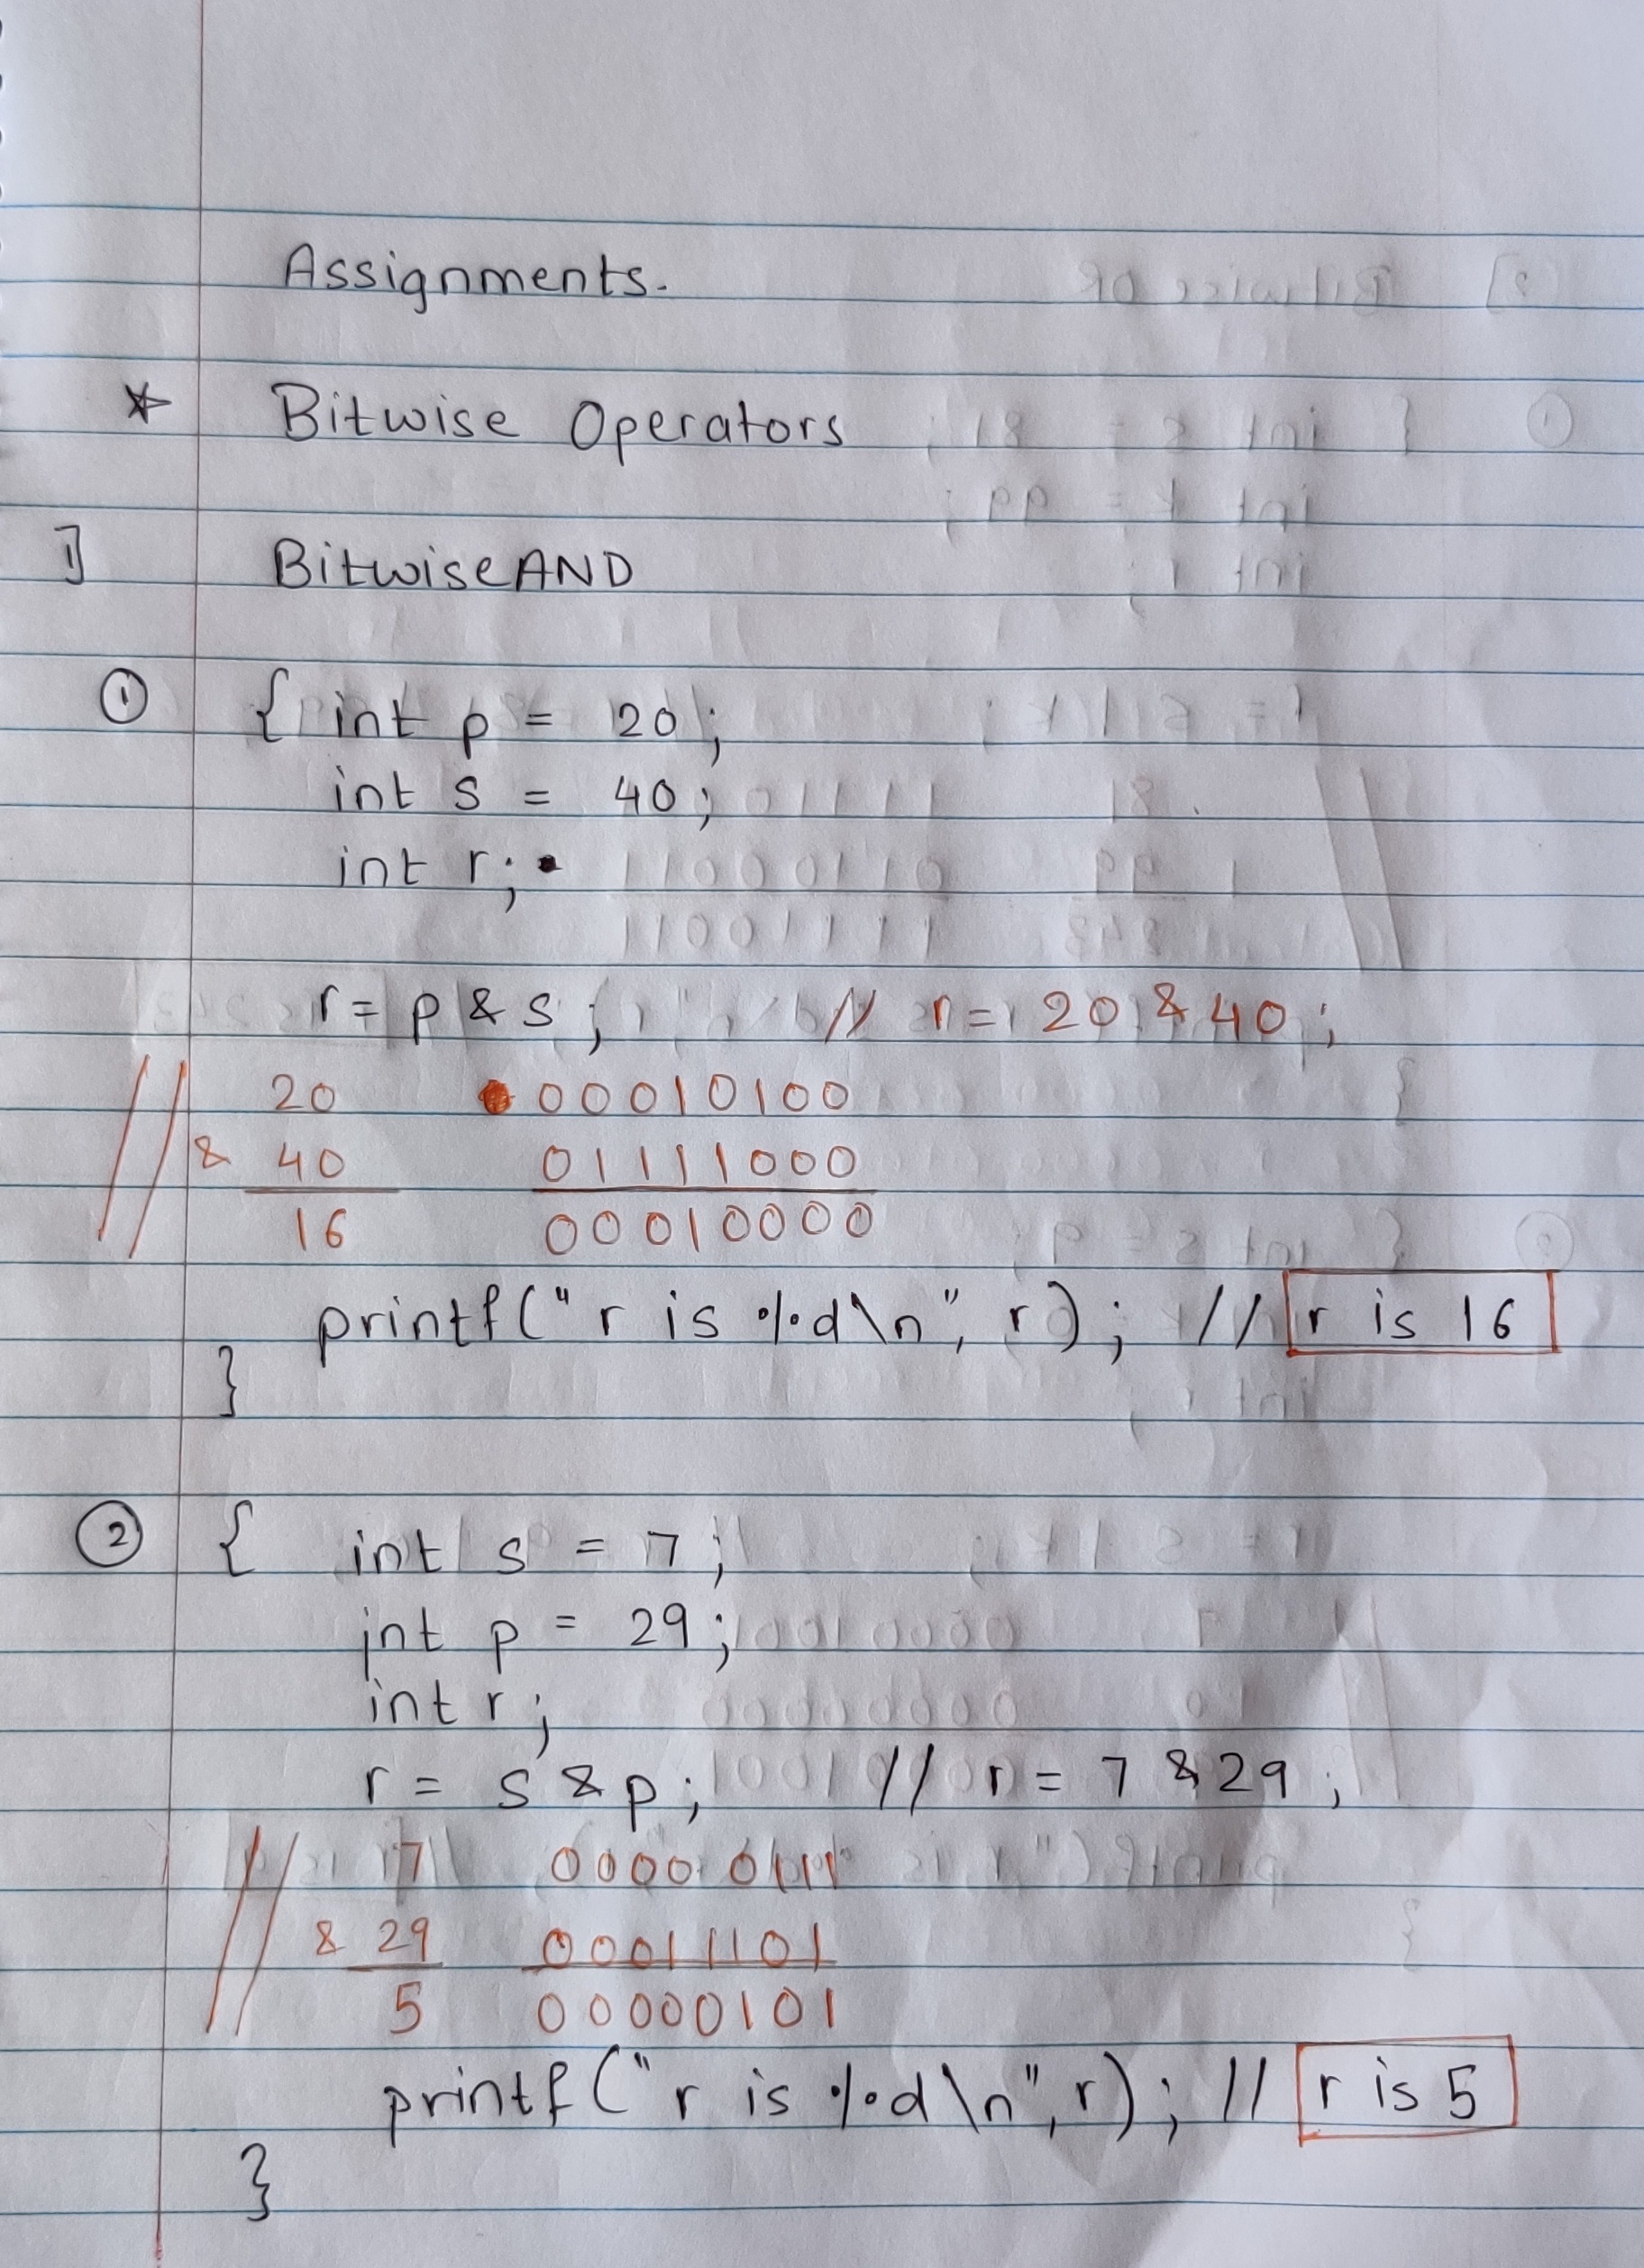 Assignments.
* Bitwise Operators
1] Bitwise AND
① { int p = 20;
int s = 40;
int r;
r = p & s; // r = 20 & 40;
// 20 00010100
& 40 01111000
16 00010000
printf("r is %d\n", r); // r is 16
}
② { int s = 7;
int p = 29;
int r;
r = s & p; // r = 7 & 29;
// 7 0000 0111
& 29 00011101
5 00000101
printf("r is %d\n", r); // r is 5
}